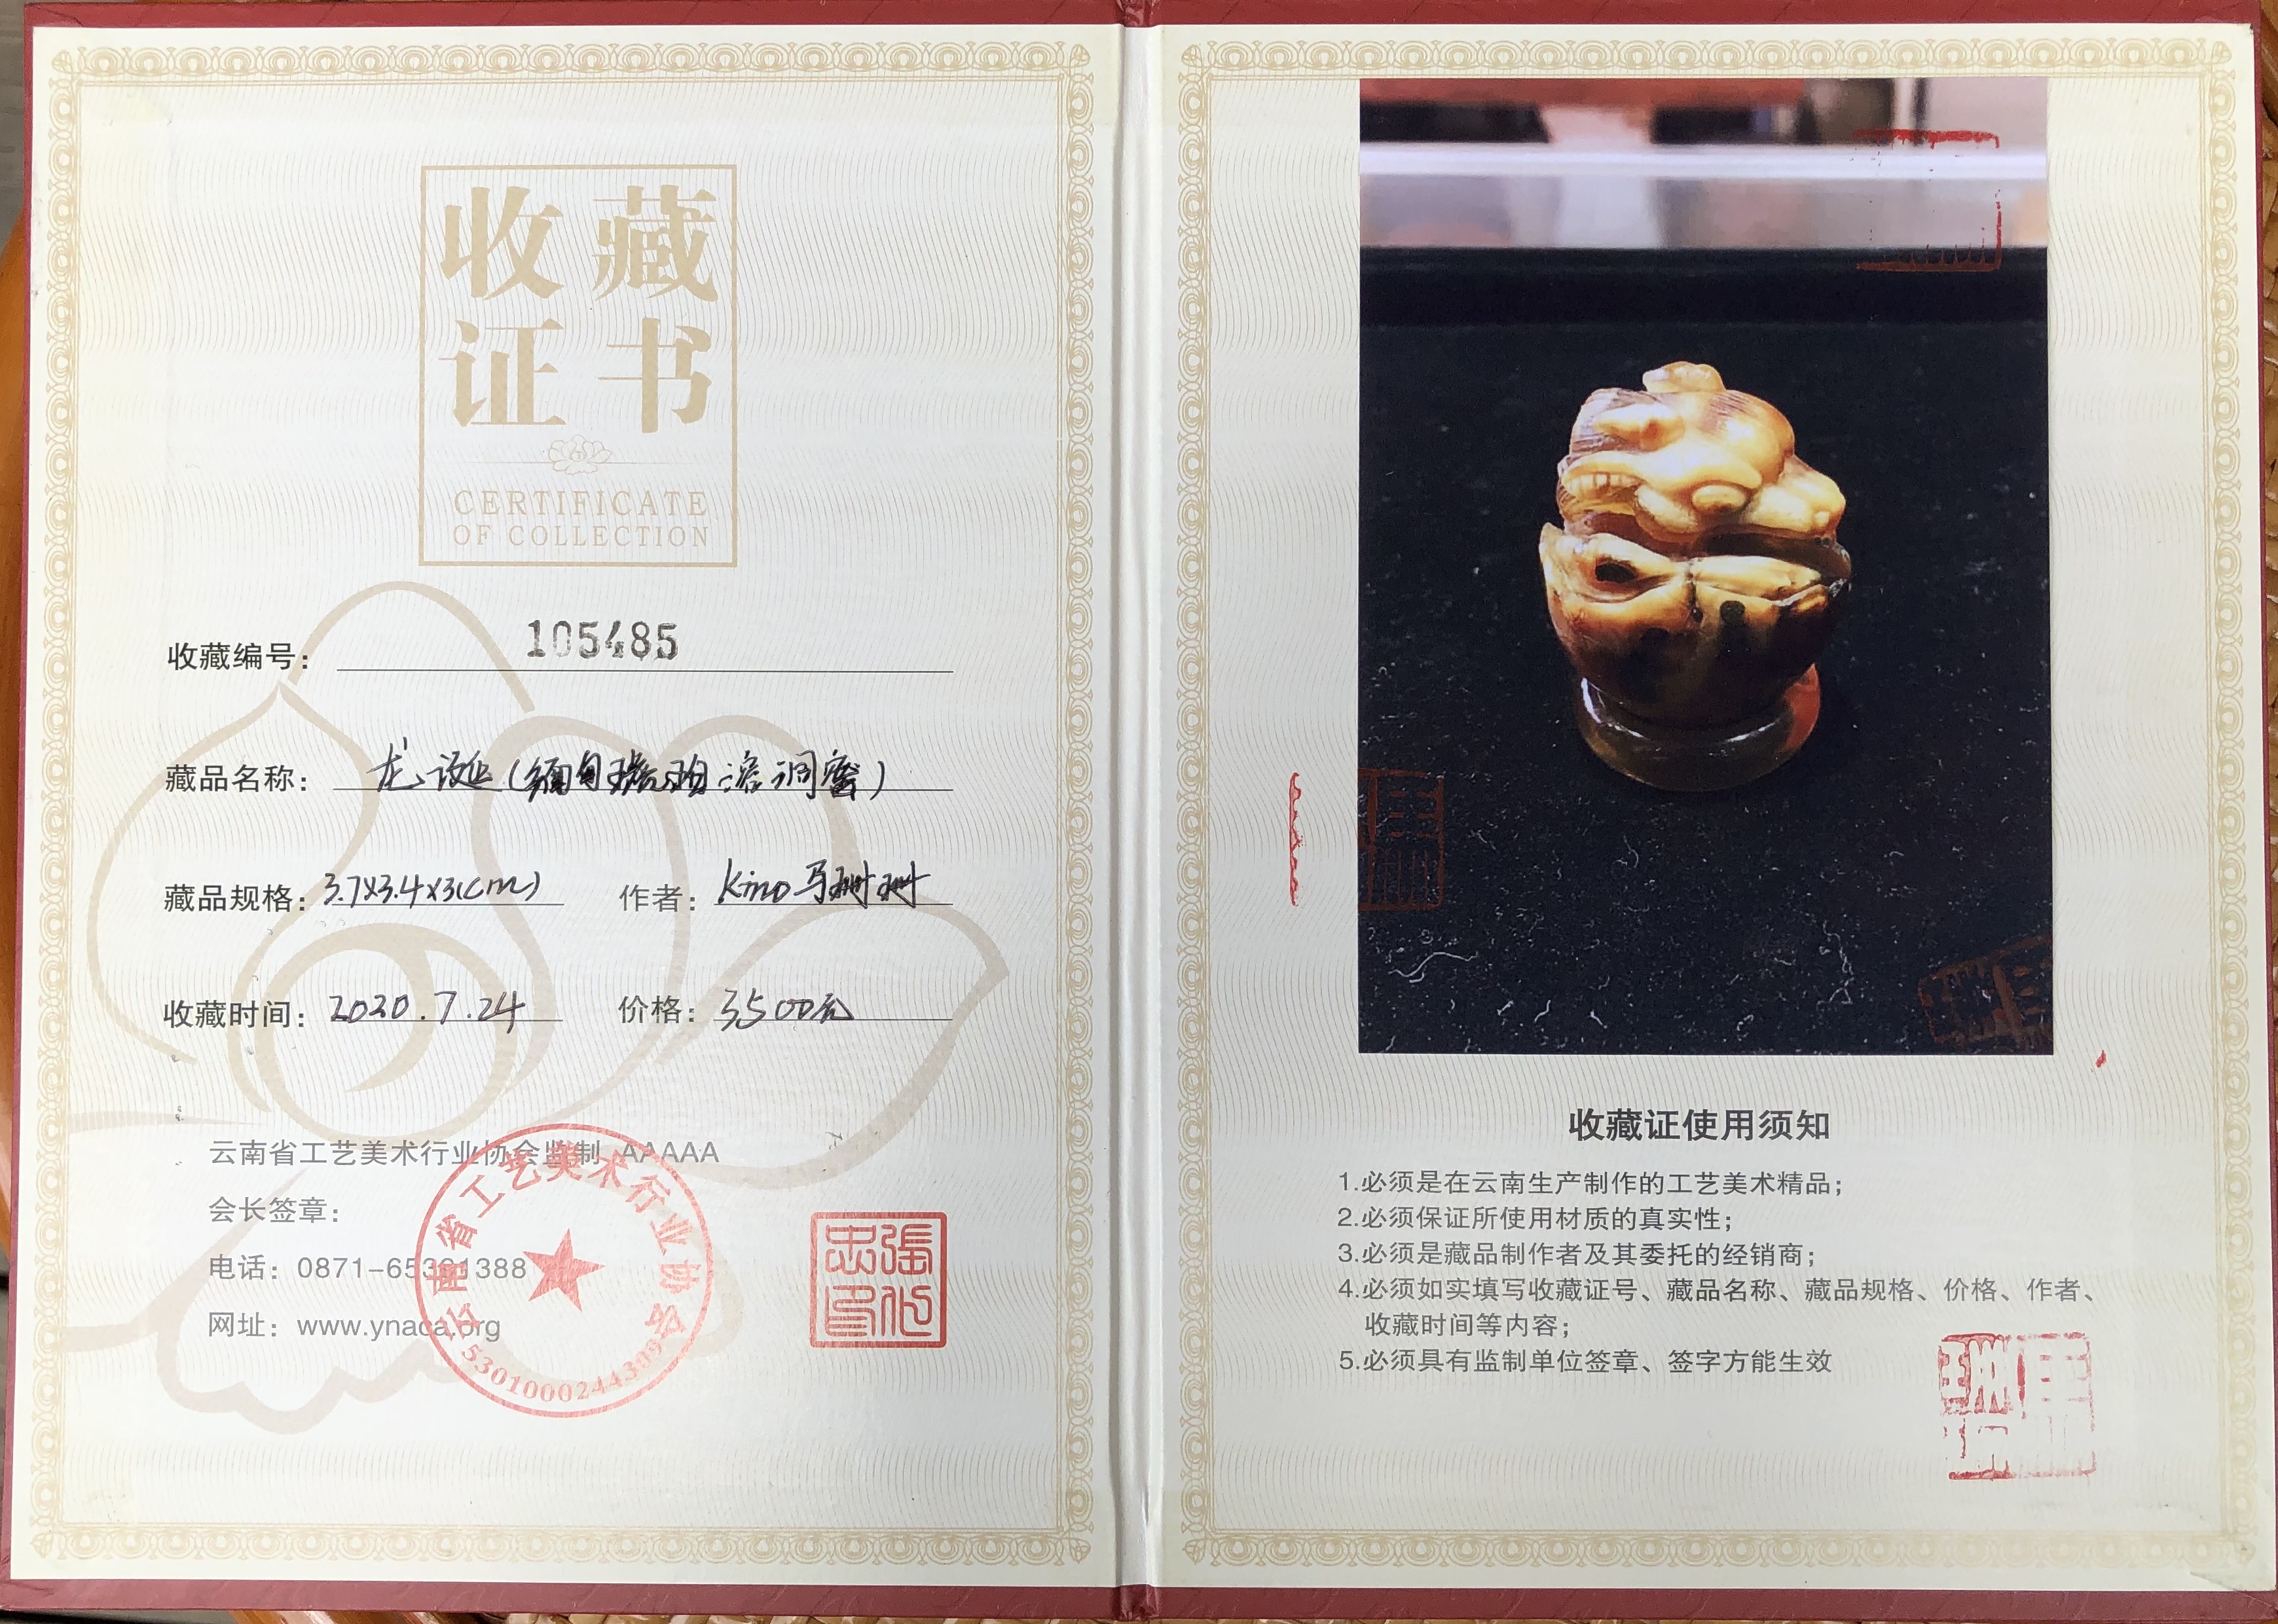 收藏
证书
CERTIFICATE
OF COLLECTION
收藏编号：105485
藏品名称：龙诞（缅甸琥珀 溶洞蜜）
藏品规格：3.7x3.4x3(cm) 作者：Kino马珊珊
收藏时间：2020.7.24 价格：3500元
云南省工艺美术行业协会监制 AAAAA
会长签章：
电话：0871-65391388
网址：www.ynaca.org
云南省工艺美术行业协会
收藏证使用须知
1.必须是在云南生产制作的工艺美术精品；
2.必须保证所使用材质的真实性；
3.必须是藏品制作者及其委托的经销商；
4.必须如实填写收藏证号、藏品名称、藏品规格、价格、作者、
收藏时间等内容；
5.必须具有监制单位签章、签字方能生效